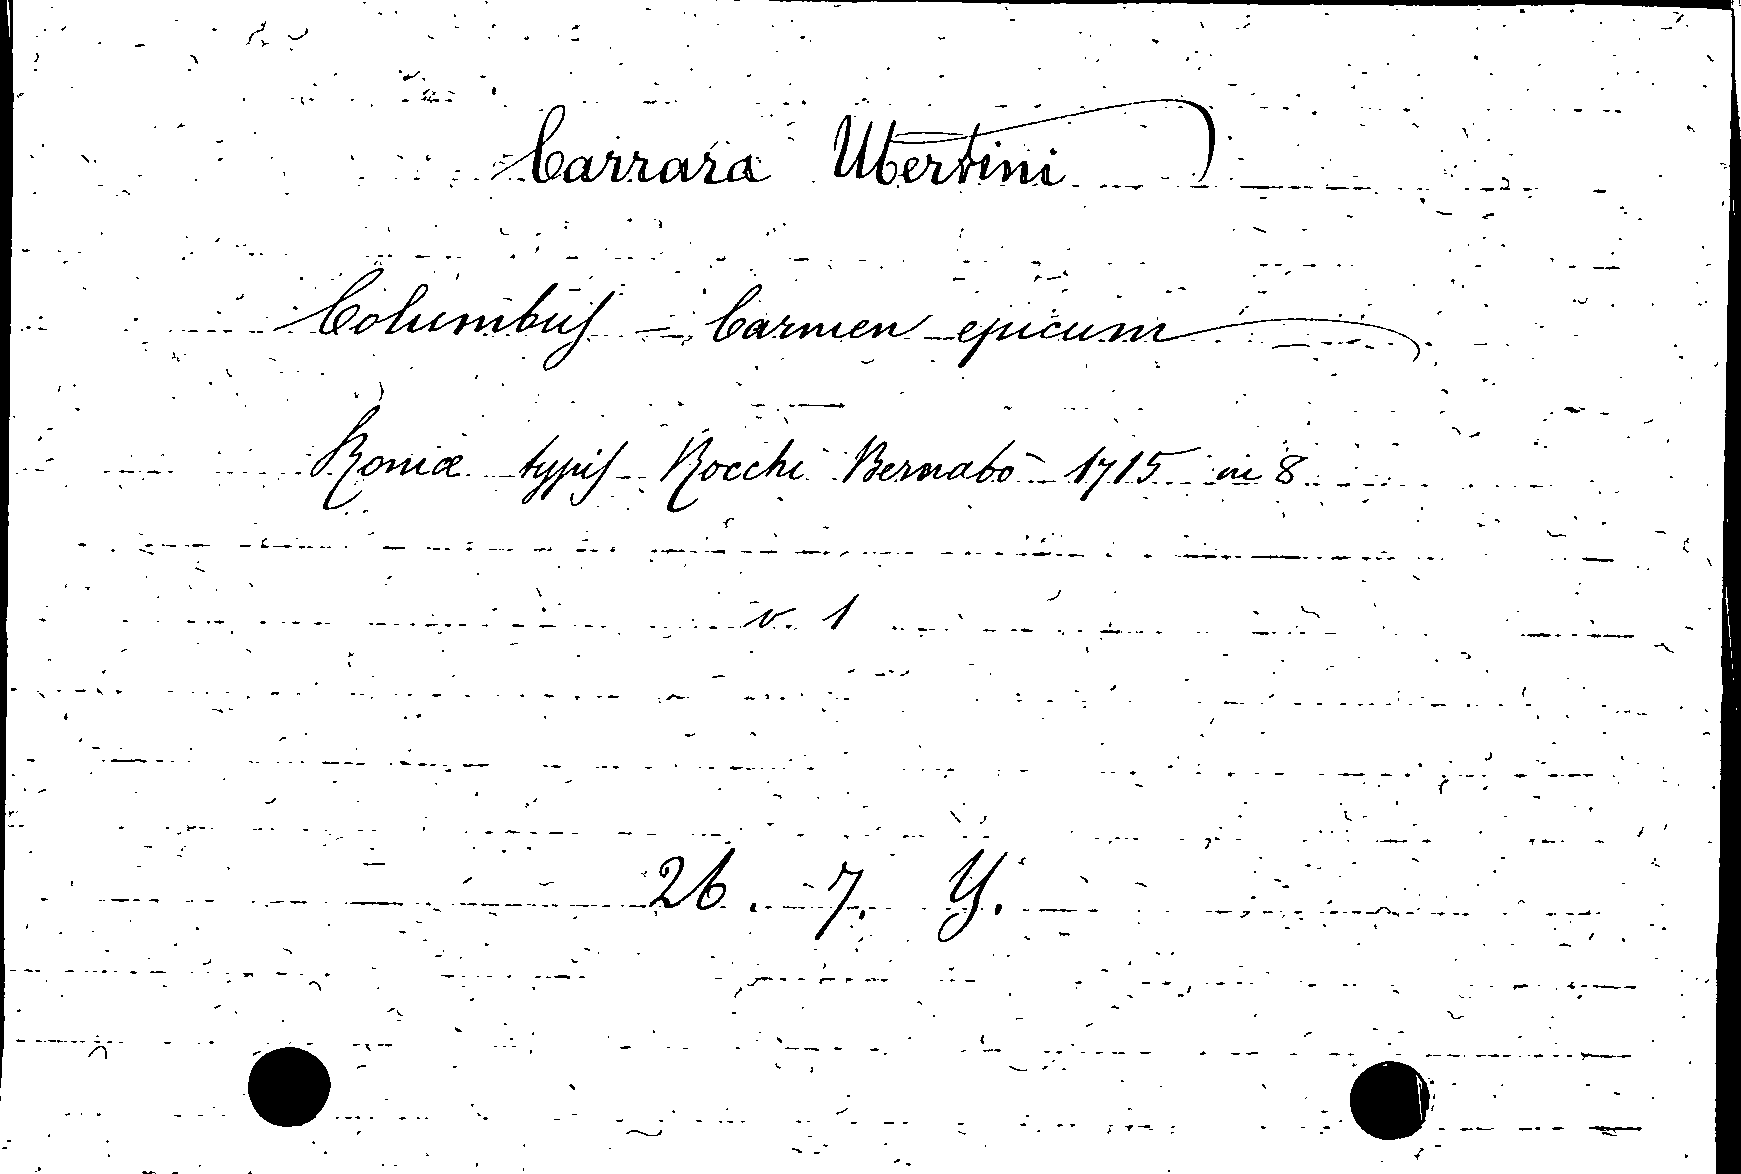 Carrara Ubertini
Columbus - Carmen epicum
Romæ typis Rocchi Bernabò 1715 in 8
v. 1
26. 7. Y.